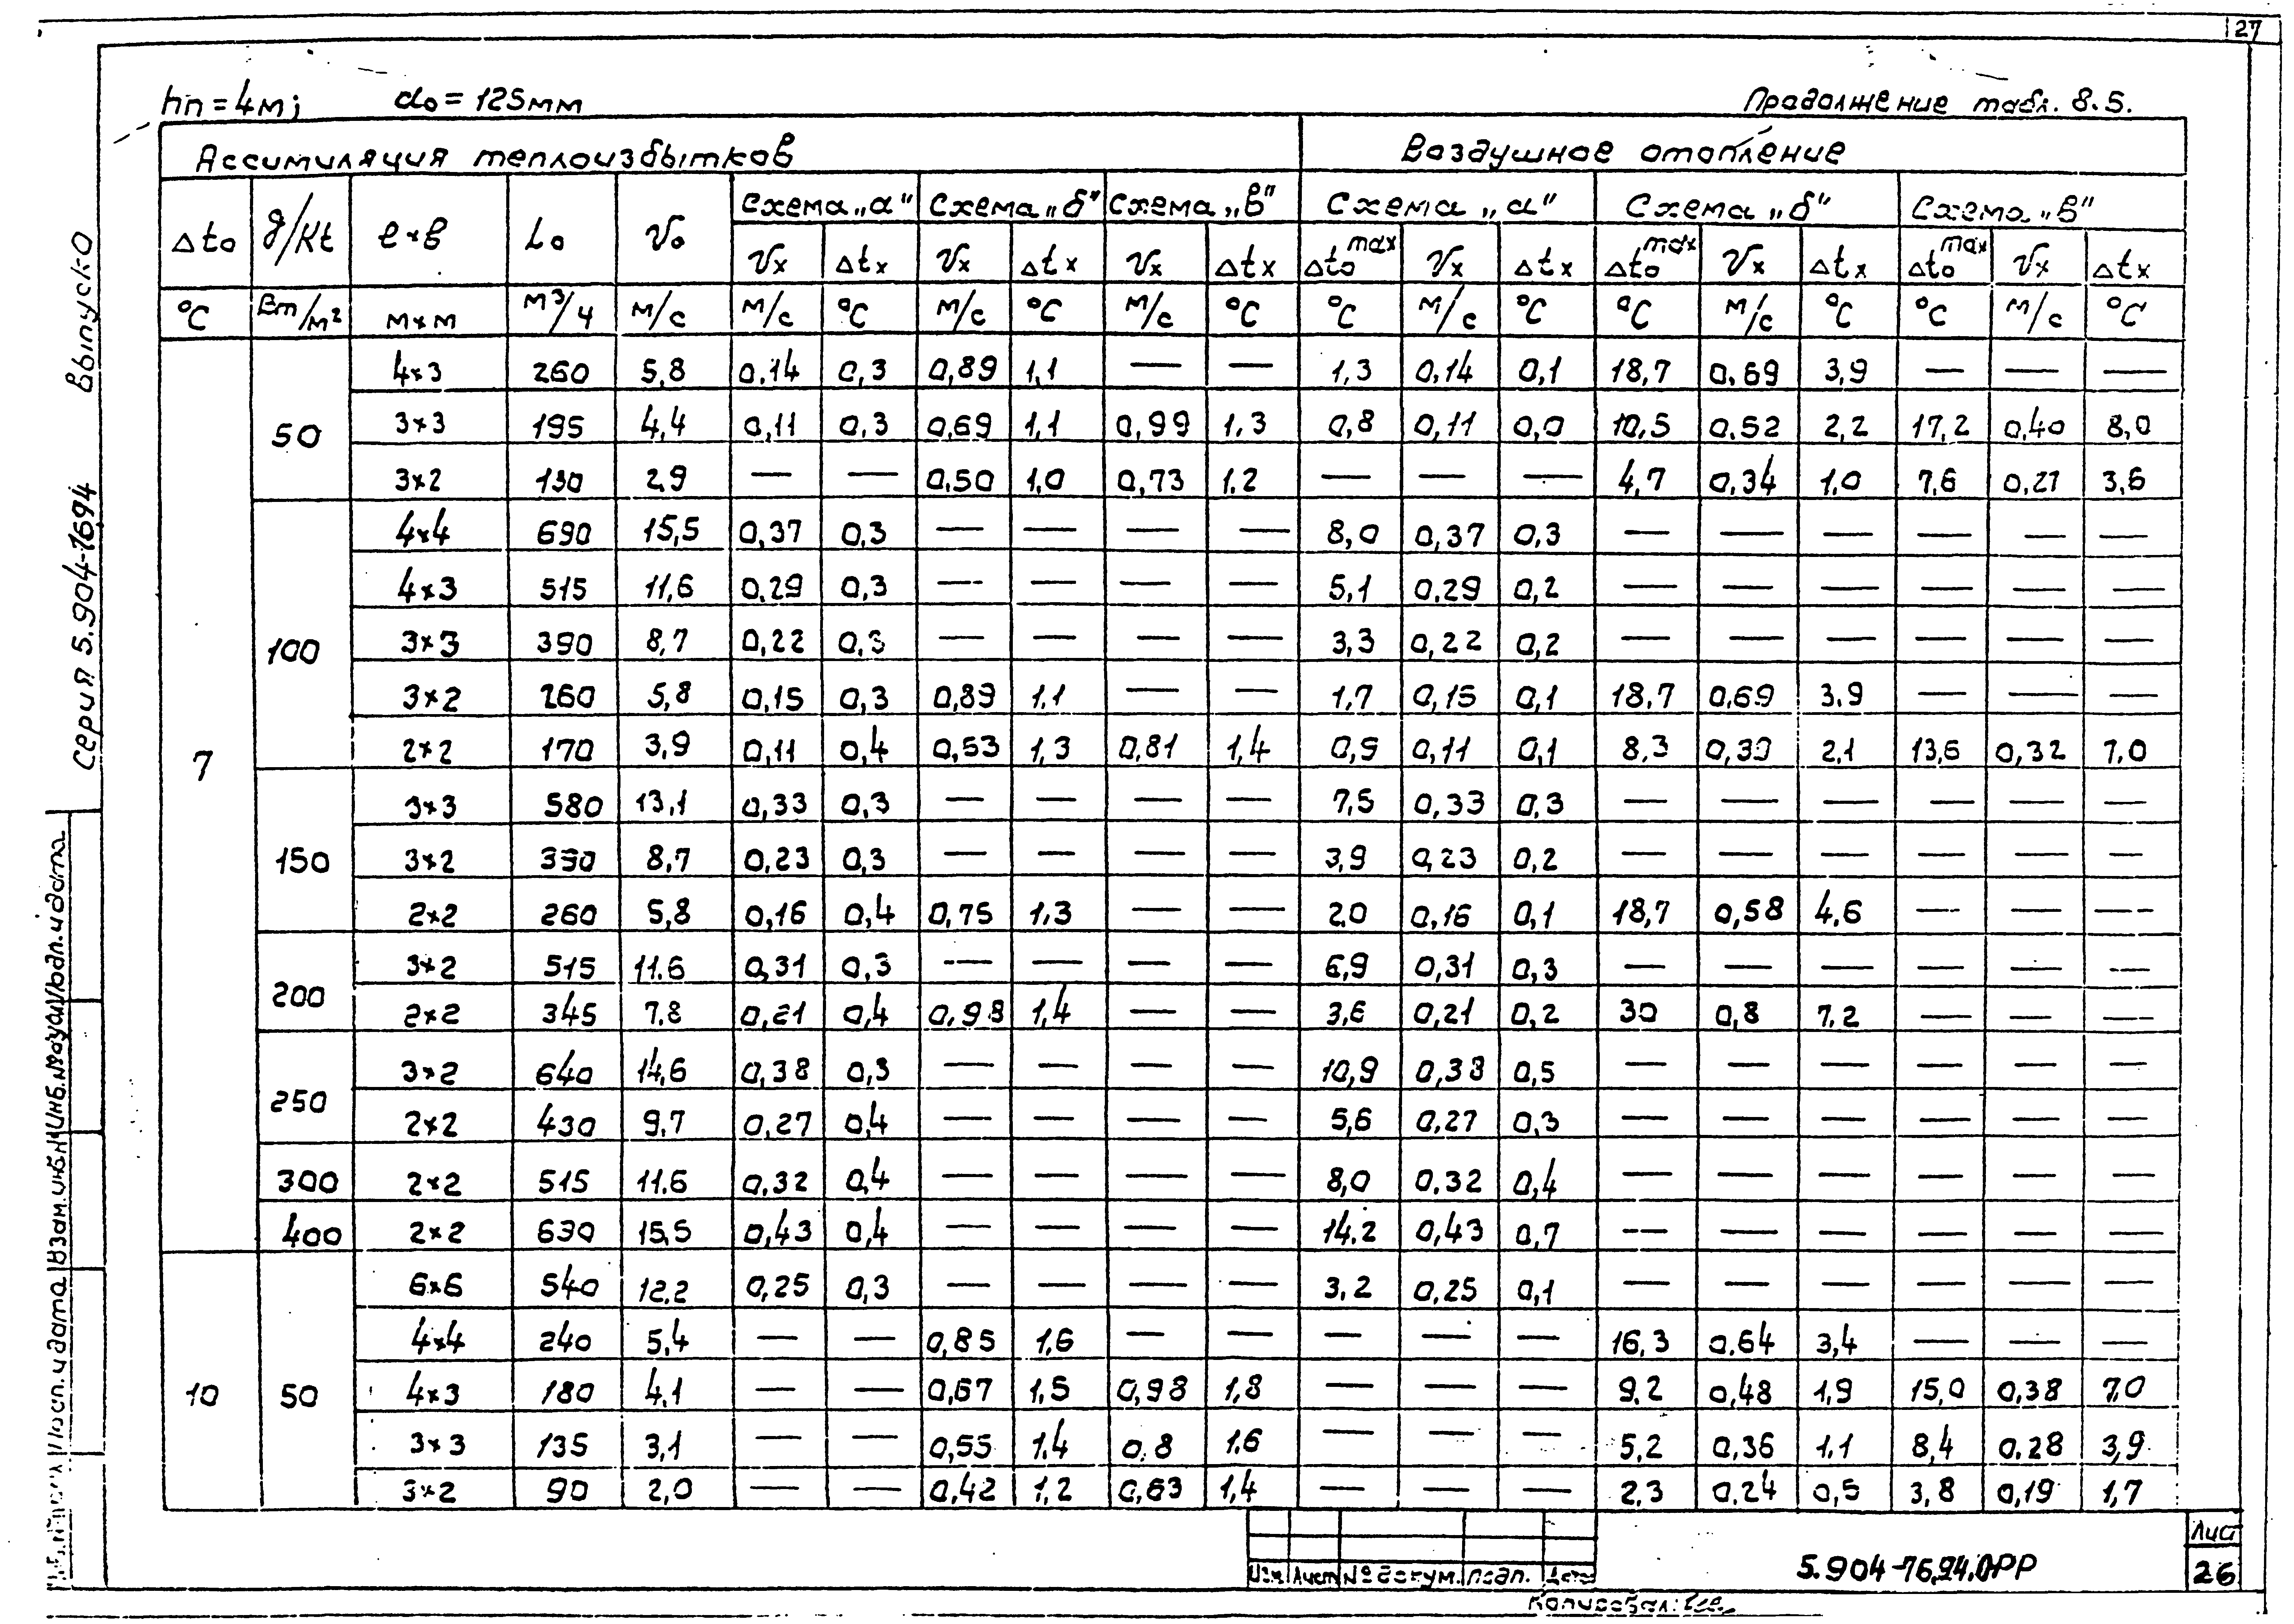 27
hп = 4м; do = 125мм Продолжение табл. 8.5.
Ассимиляция теплоизбытков Воздушное отопление
Δto g/Kt в×в Lo Vo Схема „а" Схема „б" Схема „в" Схема „а" Схема „б" Схема „в"
Vx Δtx Vx Δtx Vx Δtx Δto max Vx Δtx Δto max Vx Δtx Δto max Vx Δtx
°C Вт/м² м×м м³/ч м/с м/с °C м/с °C м/с °C °C м/с °C °C м/с °C °C м/с °C
7 50 4×3 260 5,8 0,14 0,3 0,89 1,1 — — 1,3 0,14 0,1 18,7 0,69 3,9 — — —
3×3 195 4,4 0,11 0,3 0,69 1,1 0,99 1,3 0,8 0,11 0,0 10,5 0,52 2,2 17,2 0,40 8,0
3×2 130 2,9 — — 0,50 1,0 0,73 1,2 — — — 4,7 0,34 1,0 7,6 0,27 3,6
100 4×4 690 15,5 0,37 0,3 — — — — 8,0 0,37 0,3 — — — — — —
4×3 515 11,6 0,29 0,3 — — — — 5,1 0,29 0,2 — — — — — —
3×3 390 8,7 0,22 0,3 — — — — 3,3 0,22 0,2 — — — — — —
3×2 260 5,8 0,15 0,3 0,89 1,1 — — 1,7 0,15 0,1 18,7 0,69 3,9 — — —
2×2 170 3,9 0,11 0,4 0,53 1,3 0,81 1,4 0,9 0,11 0,1 8,3 0,39 2,1 13,6 0,32 7,0
150 3×3 580 13,1 0,33 0,3 — — — — 7,5 0,33 0,3 — — — — — —
3×2 390 8,7 0,23 0,3 — — — — 3,9 0,23 0,2 — — — — — —
2×2 260 5,8 0,16 0,4 0,75 1,3 — — 2,0 0,16 0,1 18,7 0,58 4,6 — — —
200 3×2 515 11,6 0,31 0,3 — — — — 6,9 0,31 0,3 — — — — — —
2×2 345 7,8 0,21 0,4 0,98 1,4 — — 3,6 0,21 0,2 30 0,8 7,2 — — —
250 3×2 640 14,6 0,38 0,3 — — — — 10,9 0,38 0,5 — — — — — —
2×2 430 9,7 0,27 0,4 — — — — 5,6 0,27 0,3 — — — — — —
300 2×2 515 11,6 0,32 0,4 — — — — 8,0 0,32 0,4 — — — — — —
400 2×2 690 15,5 0,43 0,4 — — — — 14,2 0,43 0,7 — — — — — —
10 50 6×6 540 12,2 0,25 0,3 — — — — 3,2 0,25 0,1 — — — — — —
4×4 240 5,4 — — 0,85 1,6 — — — — — 16,3 0,64 3,4 — — —
4×3 180 4,1 — — 0,67 1,5 0,98 1,8 — — — 9,2 0,48 1,9 15,0 0,38 7,0
3×3 135 3,1 — — 0,55 1,4 0,8 1,6 — — — 5,2 0,36 1,1 8,4 0,28 3,9
3×2 90 2,0 — — 0,42 1,2 0,63 1,4 — — — 2,3 0,24 0,5 3,8 0,19 1,7
Изм Лист № докум. подп. Дата
5.904-76.94.0РР
Лист
26
Копировал:
серия 5.904-76.94 выпуск 0
Подп. и дата Взам. инв. № Инв. № дубл Подп. и дата